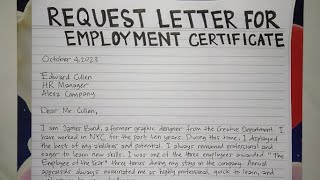 REQUEST LETTER FOR
EMPLOYMENT CERTIFICATE
October 4, 2023
Edward Cullen
HR Manager
Alexa Company
Dear Mr. Cullen,
I am James Bund, a former graphic designer from the Creative Department. I
have worked in NYC for the past ten years. During this time, I displayed
the best of my abilities and potential. I always remained professional and
eager to learn new skills. I was one of the three employees awarded "The
Employee of the Year" three times during my stay in the company. Annual
appraisals always nominated me as highly professional, quick to learn, and